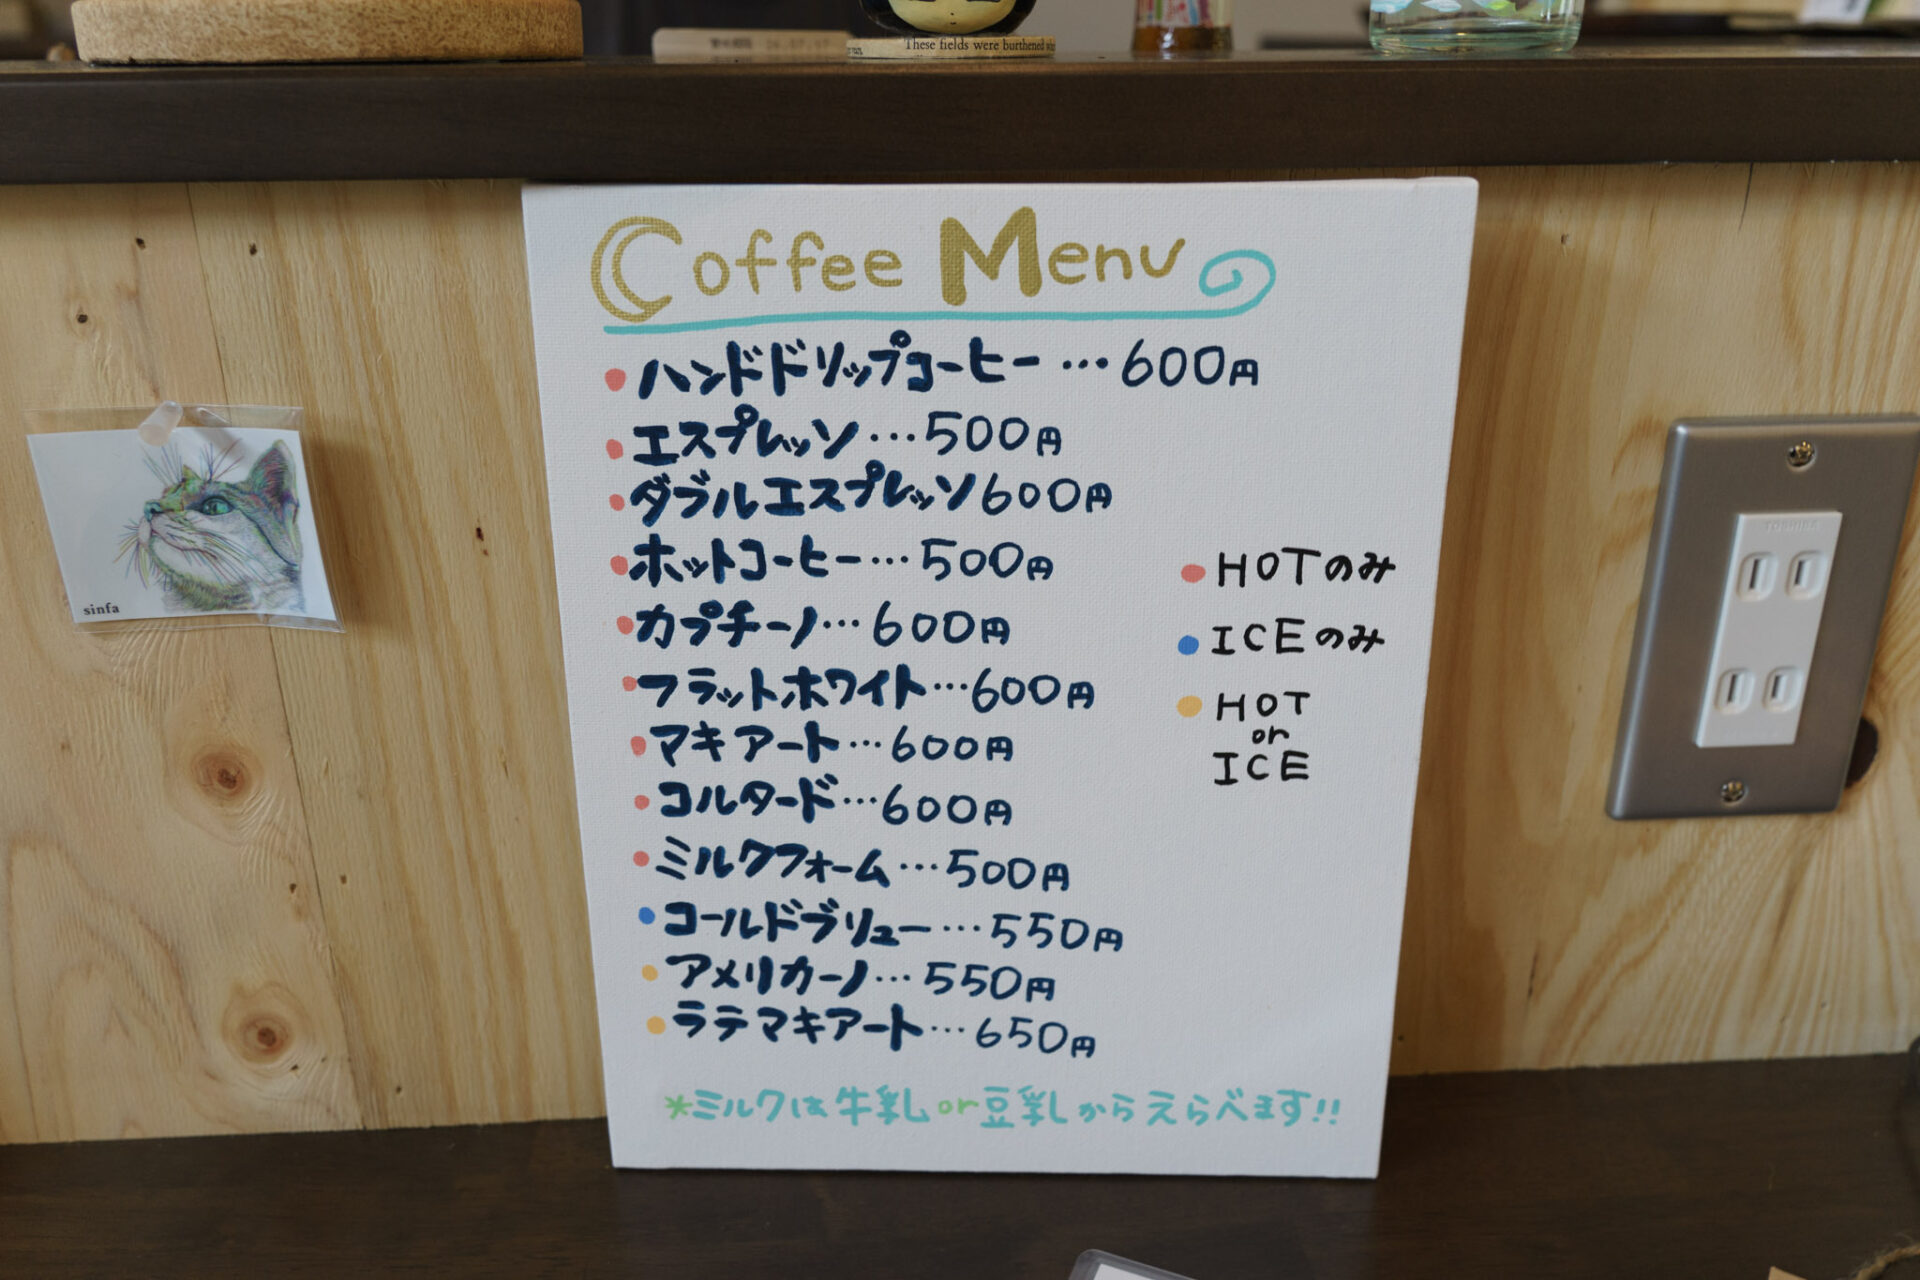 These fields were burthened
Coffee Menu
ハンドドリップコーヒー…600円
エスプレッソ…500円
ダブルエスプレッソ600円
ホットコーヒー…500円
カプチーノ…600円
フラットホワイト…600円
マキアート…600円
コルタード…600円
ミルクフォーム…500円
コールドブリュー…550円
アメリカーノ…550円
ラテマキアート…650円
HOTのみ
ICEのみ
HOT
or
ICE
*ミルクは牛乳or豆乳からえらべます!!
sinfa
TOSHIBA